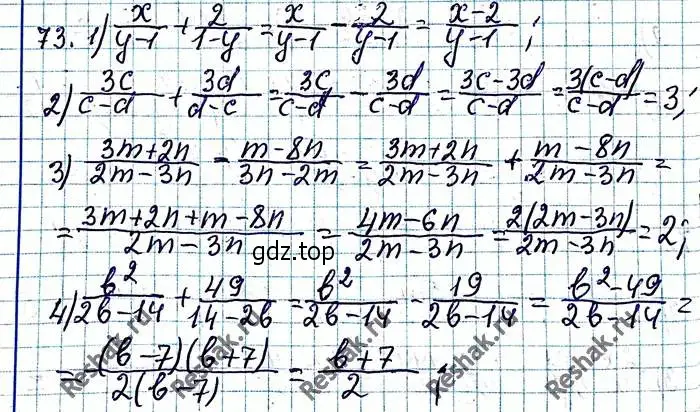 73. 1) x/(y-1) + 2/(1-y) = x/(y-1) - 2/(y-1) = (x-2)/(y-1) ;
2) 3c/(c-d) + 3d/(d-c) = 3c/(c-d) - 3d/(c-d) = (3c-3d)/(c-d) = 3(c-d)/(c-d) = 3;
3) (3m+2n)/(2m-3n) - (m-8n)/(3n-2m) = (3m+2n)/(2m-3n) + (m-8n)/(2m-3n) =
= (3m+2n+m-8n)/(2m-3n) = (4m-6n)/(2m-3n) = 2(2m-3n)/(2m-3n) = 2;
gdz.top
4) b²/(2b-14) + 49/(14-2b) = b²/(2b-14) - 19/(2b-14) = (b²-49)/(2b-14) =
= (b-7)(b+7)/(2(b-7)) = (b+7)/2 ;
Reshak.ru Reshak.ru Reshak.ru Reshak.ru